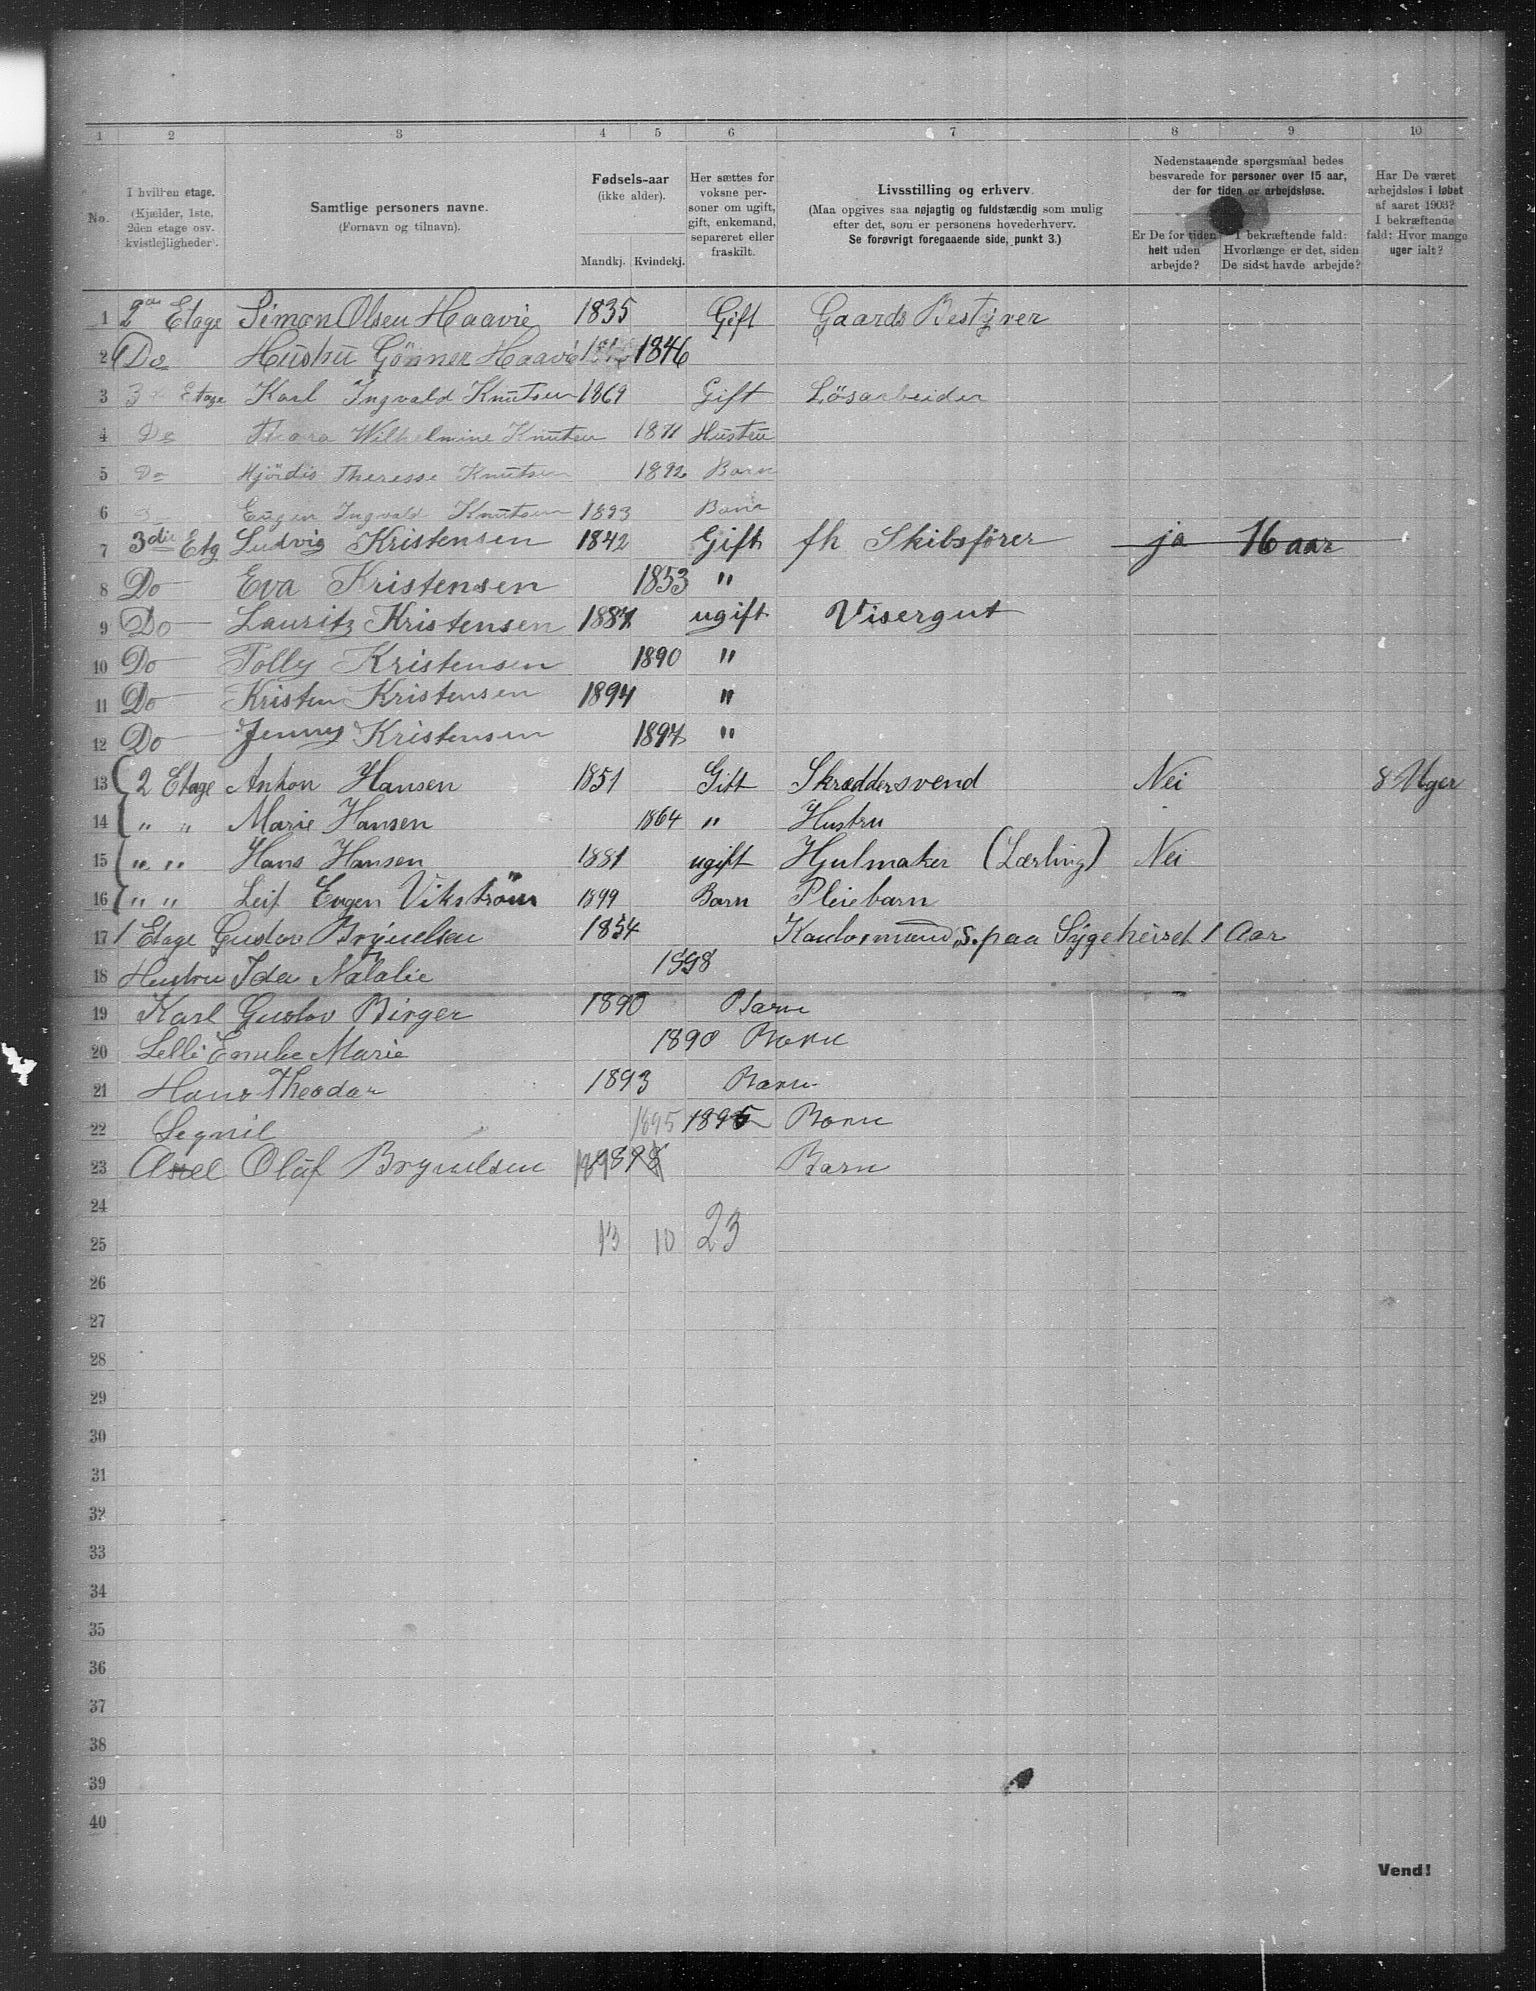 1 2 3 4 5 6 7 8 9 10
No.
I hvilken etage. (Kjælder, 1ste, 2den etage osv. kvistleiligheder).
Samtlige personers navne. (Fornavn og tilnavn).
Fødsels-aar (ikke alder). Mandkj. Kvindekj.
Her sættes for voksne personer om ugift, gift, enkemand, separeret eller fraskilt.
Livsstilling og erhverv. (Maa opgives saa nøjagtig og fuldstærdig som mulig efter det, som er personens hovederhverv. Se forøvrigt foregaaende side, punkt 3.)
Nedenstaaende spørgsmaal bedes besvarede for personer over 15 aar, der for tiden er arbejdsløse.
Er De for tiden helt uden arbejde?
I bekræftende fald: Hvorlænge er det, siden De sidst havde arbejde?
Har De været arbejdsløs i løbet af aaret 1903? I bekræftende fald: Hvor mange uger ialt?
1 2den Etage Simon Olsen Haavie 1835 Gift Gaards Bestyrer
2 Do Hustru Gönner Haavi 1846
3 3 Etage Karl Ingvald Knutsen 1869 Gift Lösarbeider
4 Do Thora Wilhelmine Knutsen 1871 Hustru
5 Do Hjördis Theresse Knutsen 1892 Barn
6 Eugen Ingvald Knutsen 1893 Barn
7 3die Etg Ludvig Kristensen 1842 Gift fh Skibsfører ja 16 aar
8 Do Eva Kristensen 1853 "
9 Do Lauritz Kristensen 1887 ugift Visergut
10 Do Tolly Kristensen 1890 "
11 Do Kristen Kristensen 1894 "
12 Do Jenny Kristensen 1897 "
13 2 Etage Anton Hansen 1851 Gift Skræddersvend Nei 8 Uger
14 " " Marie Hansen 1864 " Hustru
15 " " Hans Hansen 1881 ugift Hjulmaker (Lærling) Nei
16 " " Leif Eugen Vikström 1899 Barn Pleiebarn
17 1 Etage Gustav Brynelsen 1854 s. paa Sygehuset 1 Aar
18 Hustru Ida Natalie
19 Karl Gustav Birger 1890 Barn
20 Marie 1890 Barn
21 Hans Theodor 1893 Barn
22 1895 1895 Barn
23 Olaf Brynelsen 1898 Barn
24
25 13 10 23
26
27
28
29
30
31
32
33
34
35
36
37
38
39
40
Vend!